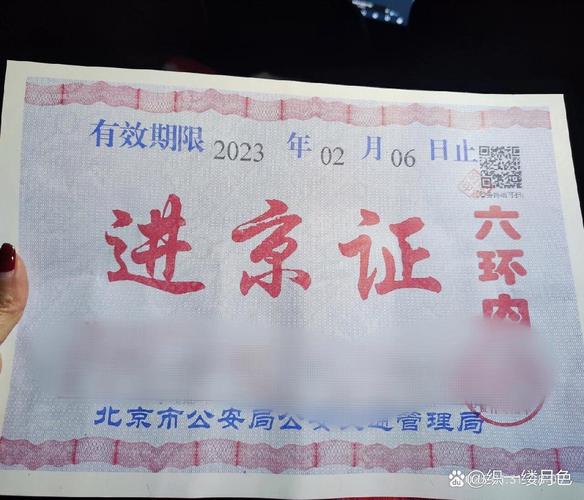 有效期限 2023 年 02 月 06 日止
进京证
六环内
北京市公安局公安交通管理局
@织一缕月色